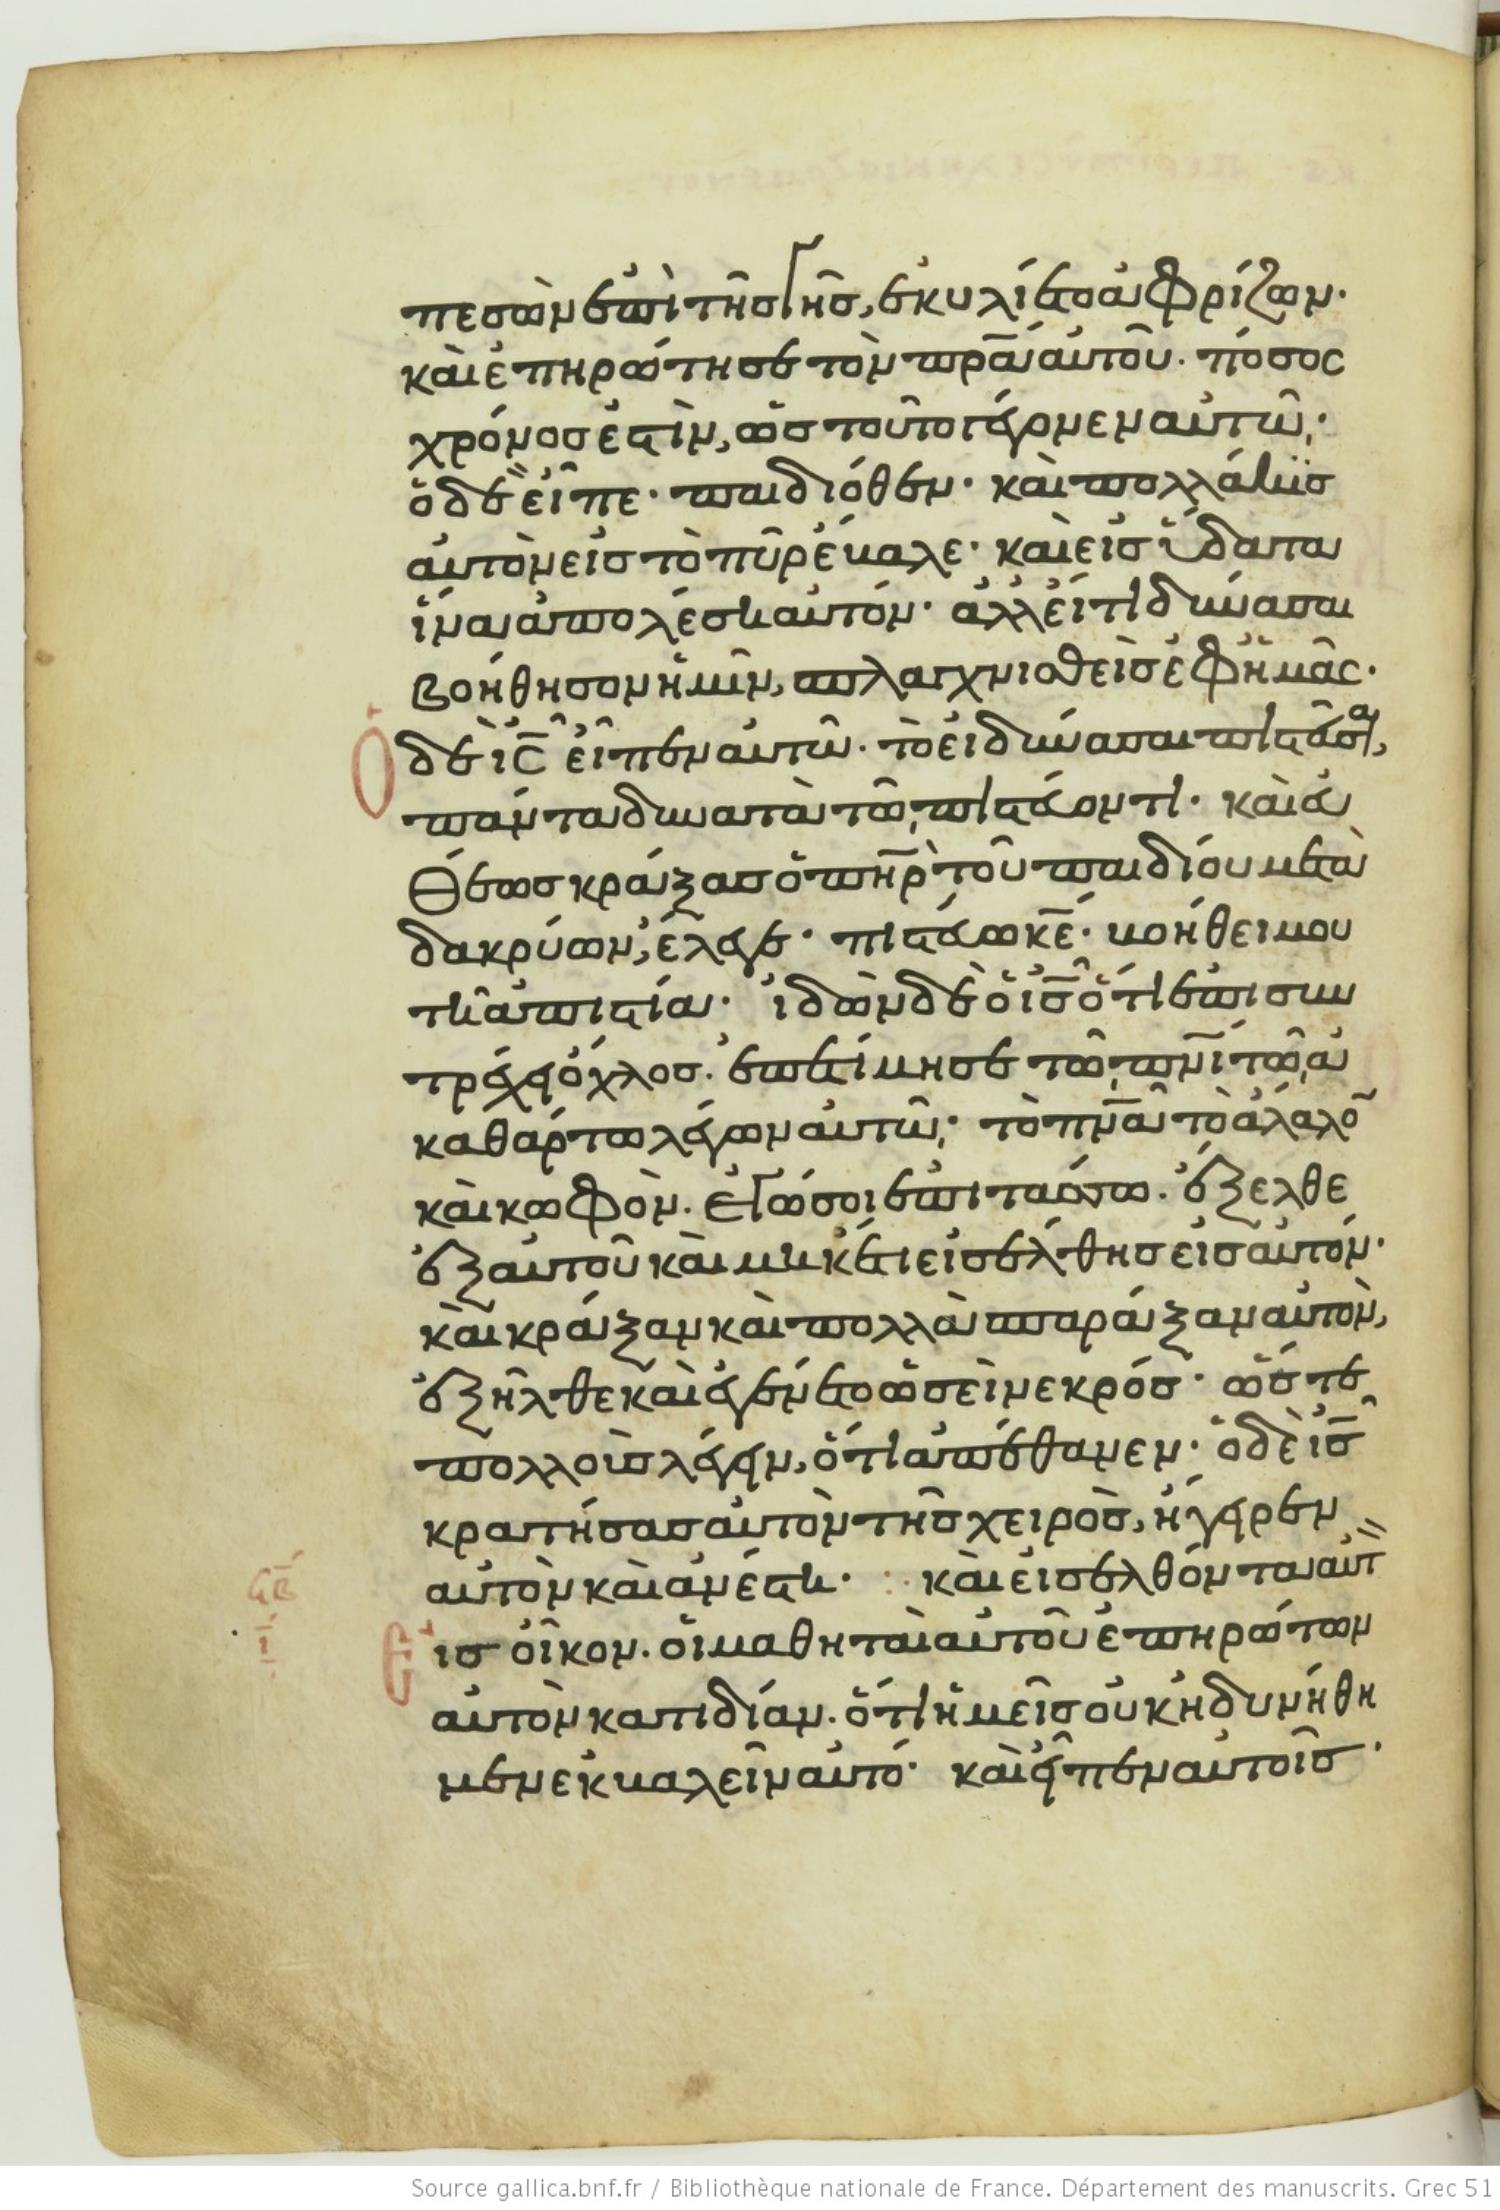 πεσὼν ἐπὶ τῆς γῆς, ἐκυλίετο ἀφρίζων·
καὶ ἐπηρώτησε τὸν πρᾱ αὐτοῦ· πόσος
χρόνος ἐστὶν, ὡς τοῦτο γέγονεν αὐτῶ·
ὁ δὲ εἶπε· παιδιόθεν· καὶ πολλάκϊς
αὐτὸν εἰς τὸ πῦρ ἔβαλε· καὶ εἰς ὕδατα
ἵνα ἀπολέση αὐτόν· ἀλλ' εἴ τι δύνασαι
βοήθησον ἡμῖν, σπλαγχνισθεὶς ἐφ' ἡμᾶς·
Ὁ δὲ ις̄ εἶπεν αὐτῶ· τὸ εἰ δύνασαι πιστεῦσαι,
πάντα δυνατὰ τῶ πιστεύοντι· καὶ εὐ
θέως κράξας ὁ πη̄ρ τοῦ παιδίου μετὰ
δακρύων, ἔλεγε· πιστεύω κε̄· βοήθει μου
τῆ ἀπιστία· ἰδὼν δὲ ὁ ις̄ ὅτι ἐπισυν
τρέχει ὄχλος· ἐπετίμησε τῶ πνῑ τῶ ἀ
καθάρτω λέγων αὐτῶ· τὸ πνᾱ τὸ ἄλαλο̄
καὶ κωφὸν· ἐγώ σοι ἐπιτάσσω· ἔξελθε
ἐξ αὐτοῦ καὶ μηκέτι εἰσέλθης εἰς αὐτόν·
καὶ κράξαν καὶ πολλὰ σπαράξαν αὐτὸν,
ἐξῆλθε καὶ ἐγένετο ὡσεὶ νεκρός· ὥστε
πολλοὺς λέγειν, ὅτι ἀπέθανεν· ὁ δὲ ις̄
κρατήσας αὐτὸν τῆς χειρὸς, ἤγειρεν
αὐτὸν καὶ ἀνέστη· καὶ εἰσελθόντα αὐτ
Εἰς οἶκον· οἱ μαθηταὶ αὐτοῦ ἐπηρώτων
αὐτὸν κατιδίαν· ὅτι ἡμεῖς οὐκ ἠδυνήθη
μεν ἐκβαλεῖν αὐτό· καὶ εἶπεν αὐτοῖς·
Source gallica.bnf.fr / Bibliothèque nationale de France. Département des manuscrits. Grec 51